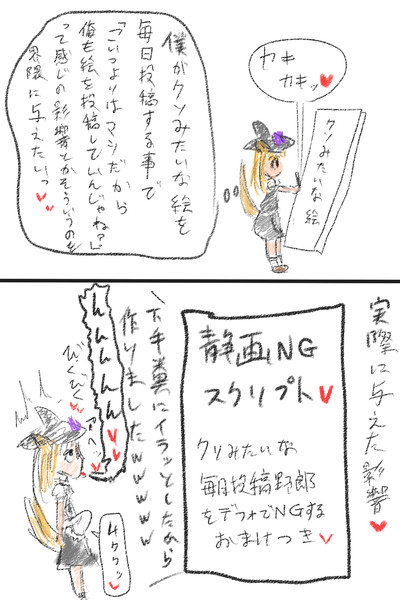 カキ
カキッ♥
クソみたいな絵
僕がクソみたいな絵を
毎日投稿する事で
「こいつよりはマシだから
俺も絵を投稿していんじゃね?」
って感じの影響とかそういうのを
界隈に与えたいっ♥♥
実際に与えた影響♥
静画NG
スクリプト♥
クソみたいな
毎日投稿野郎
をデフォでNGする
おまけつき♥
下手糞にイラッとしたから
作りましたwwwww
んんんんん♥♥
びくびく